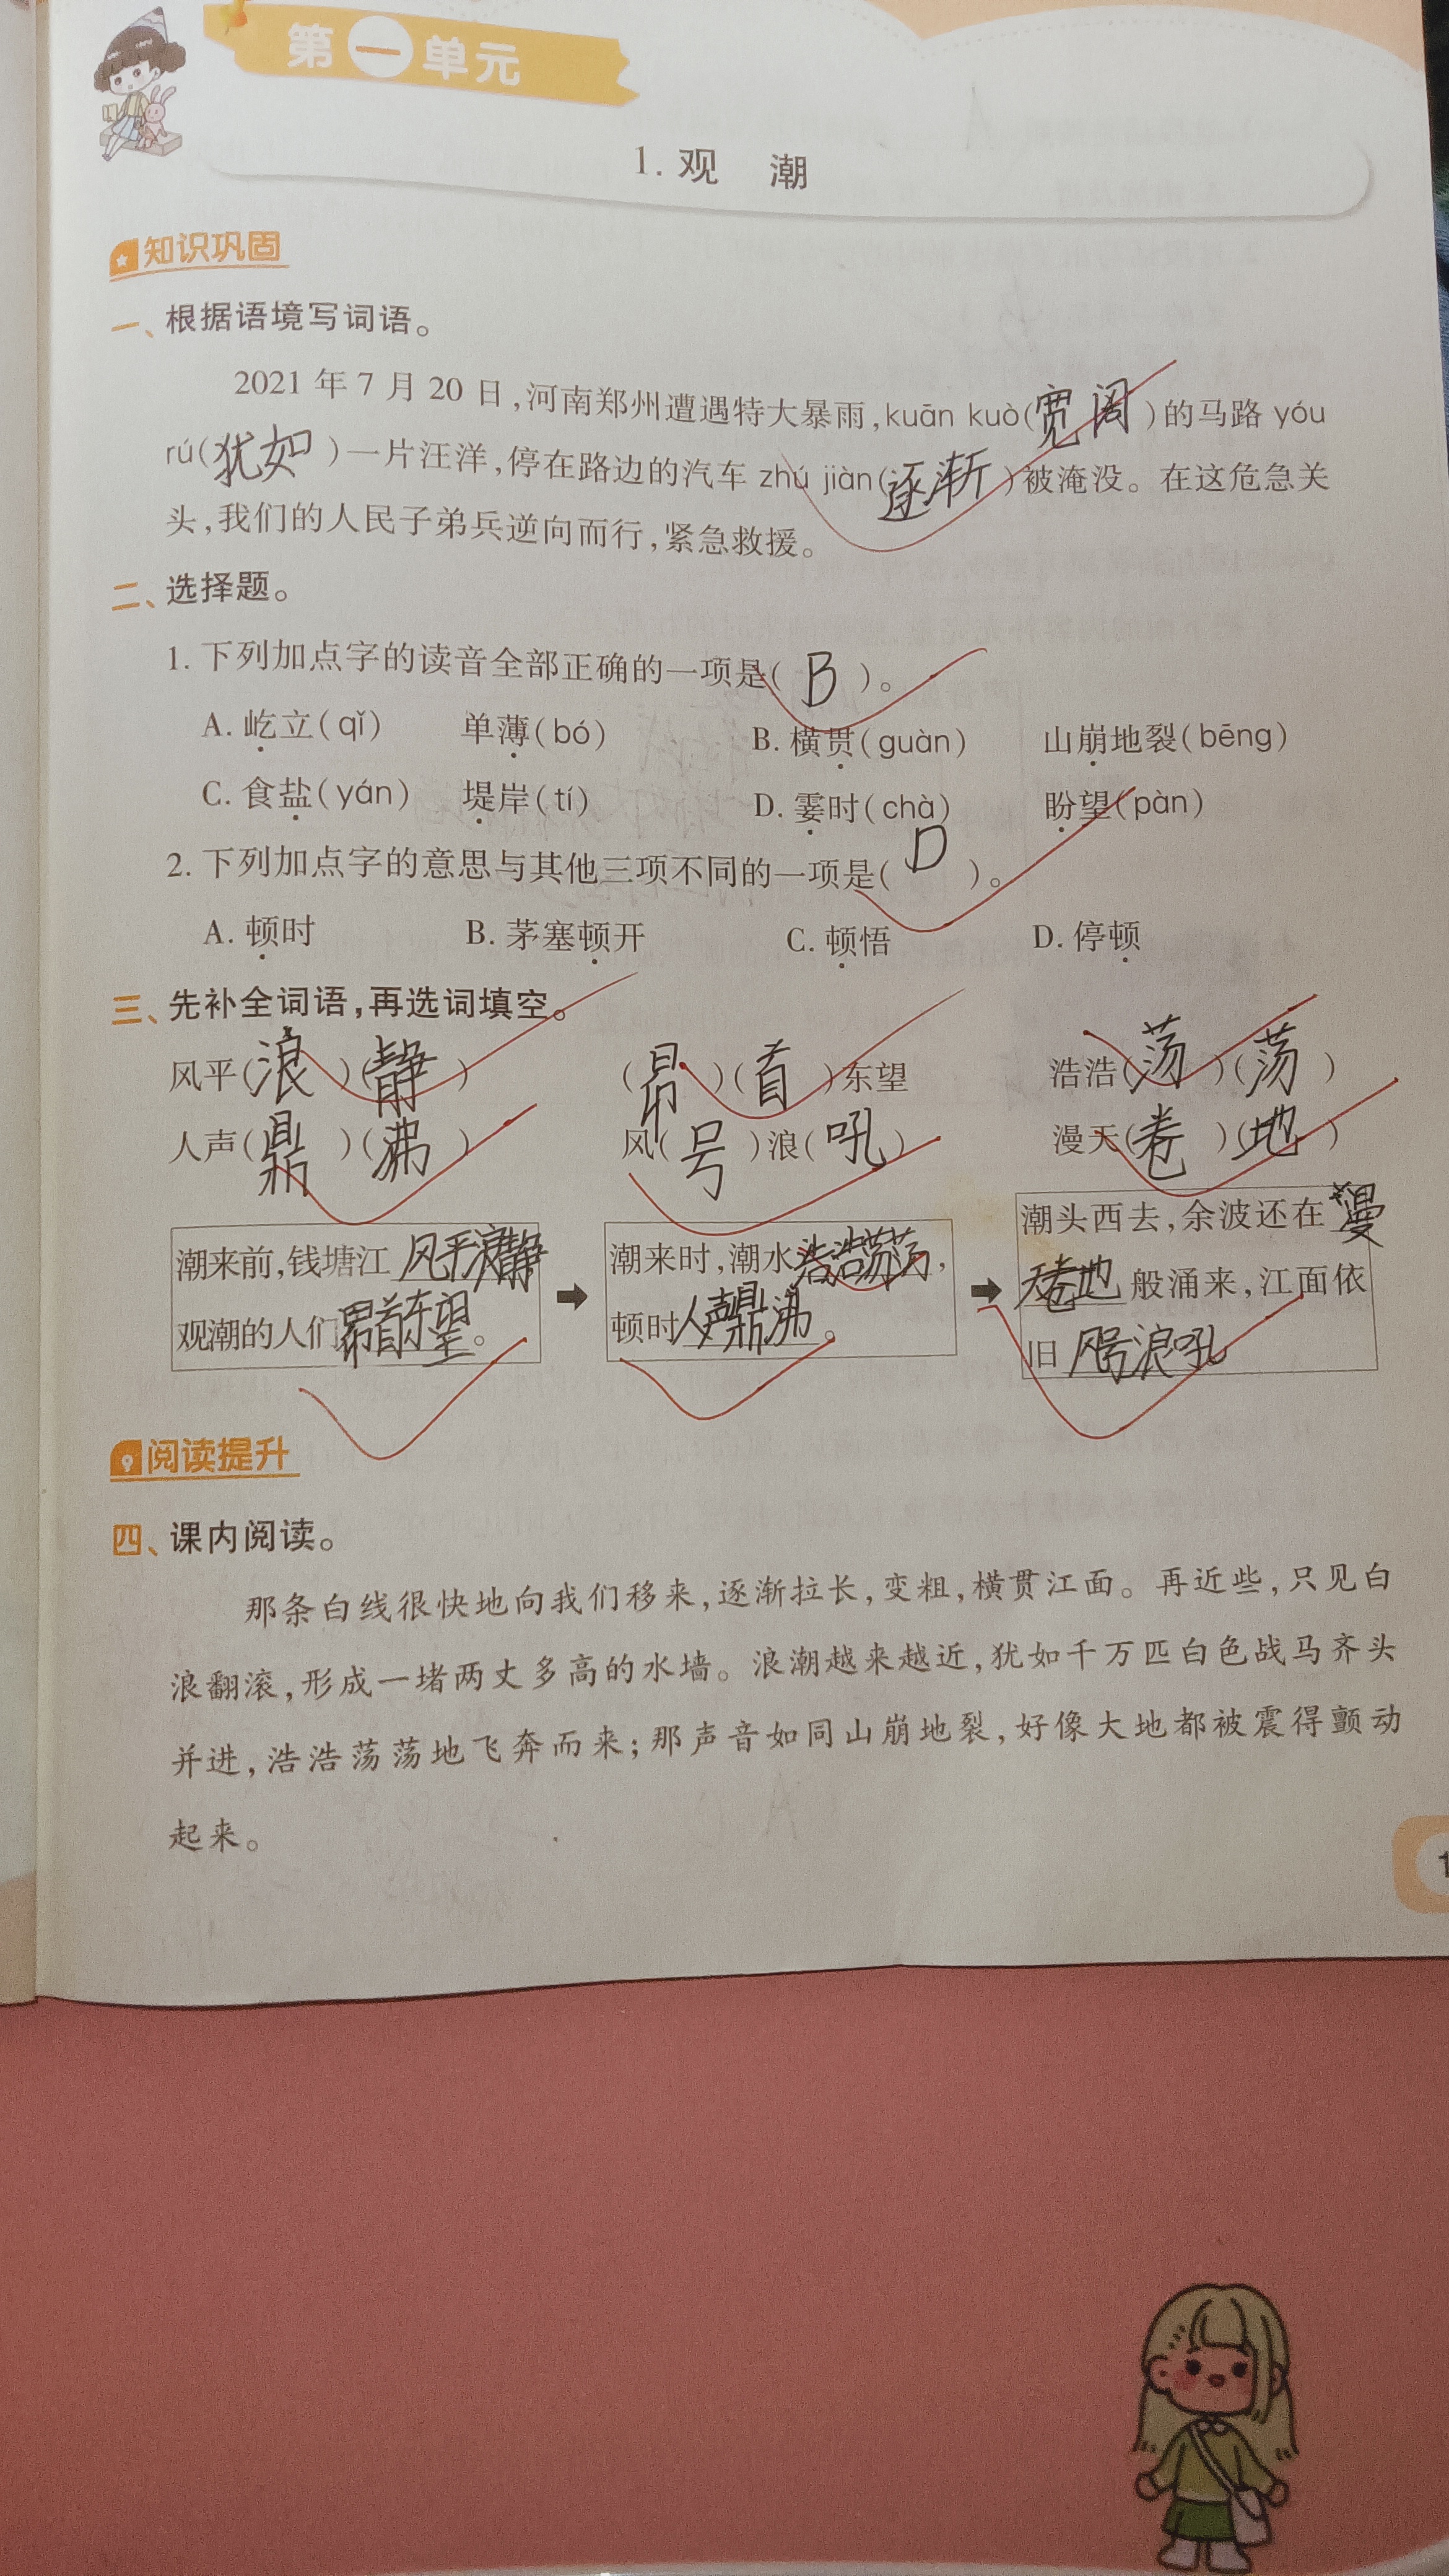 第一单元
1. 观 潮
知识巩固
一、根据语境写词语。
2021 年 7 月 20 日,河南郑州遭遇特大暴雨,kuān kuò(宽阔)的马路 yóu
rú(犹如)一片汪洋,停在路边的汽车 zhú jiàn(逐渐)被淹没。在这危急关
头,我们的人民子弟兵逆向而行,紧急救援。
二、选择题。
1. 下列加点字的读音全部正确的一项是( B )。
A. 屹立(qǐ) 单薄(bó) B. 横贯(guàn) 山崩地裂(bēng)
C. 食盐(yán) 堤岸(tí) D. 霎时(chà) 盼望(pàn)
2. 下列加点字的意思与其他三项不同的一项是( D )。
A. 顿时 B. 茅塞顿开 C. 顿悟 D. 停顿
三、先补全词语,再选词填空。
风平(浪)(静) (昂)(首)东望 浩浩(荡)(荡)
人声(鼎)(沸) 风(号)浪(吼) 漫天(卷)(地)
潮来前,钱塘江风平浪静
观潮的人们昂首东望。
潮来时,潮水浩浩荡荡,
顿时人声鼎沸。
潮头西去,余波还在漫
天卷地般涌来,江面依
旧风号浪吼
阅读提升
四、课内阅读。
那条白线很快地向我们移来,逐渐拉长,变粗,横贯江面。再近些,只见白
浪翻滚,形成一堵两丈多高的水墙。浪潮越来越近,犹如千万匹白色战马齐头
并进,浩浩荡荡地飞奔而来;那声音如同山崩地裂,好像大地都被震得颤动
起来。
1